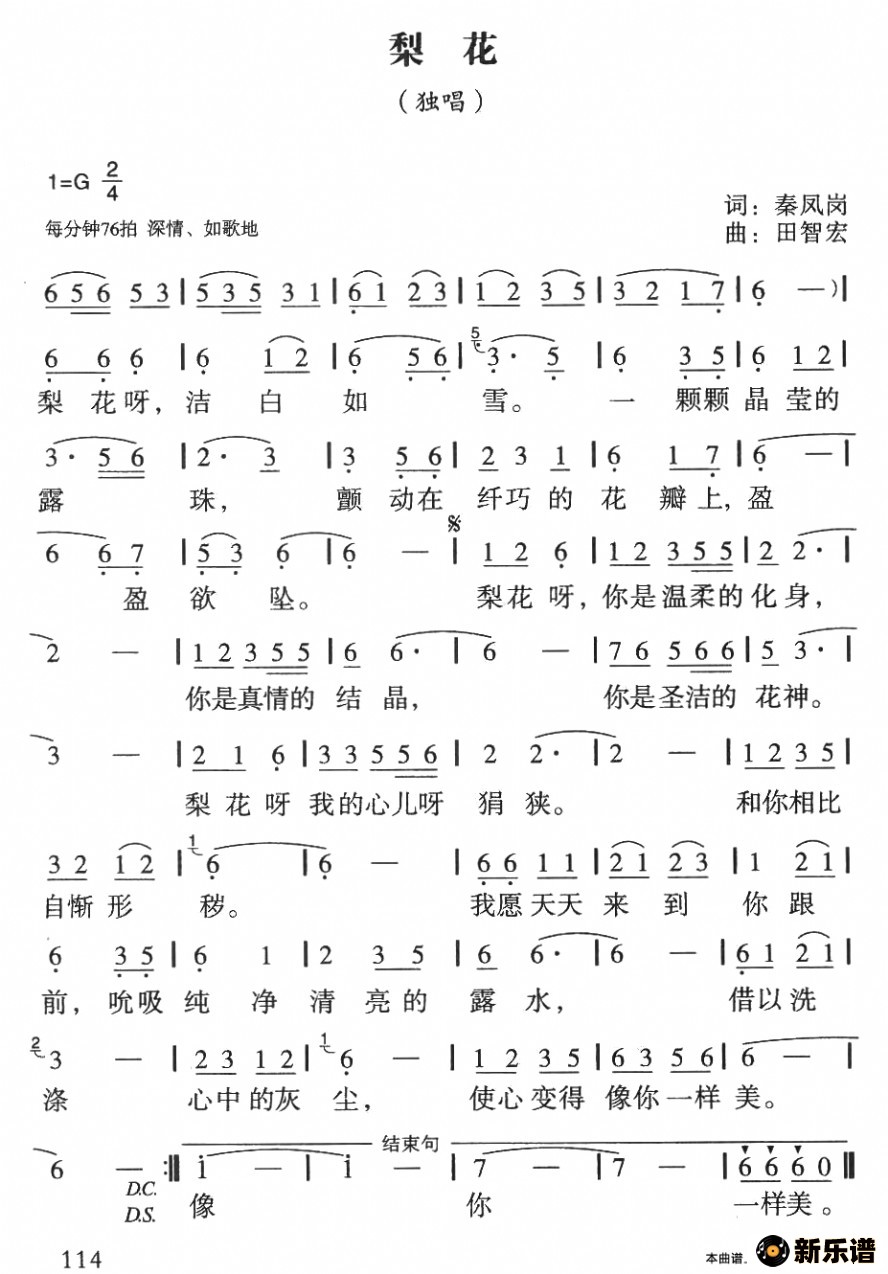 梨 花
（独唱）
1=G 2/4
词：秦凤岗
每分钟76拍 深情、如歌地
曲：田智宏
6 5 6 5 3 | 5 3 5 3 1 | 6 1 2 3 | 1 2 3 5 | 3 2 1 7 | 6 — ）|
6 6 6 | 6 1 2 | 6 5 6 | 5 3· 5 | 6 3 5 | 6 1 2 |
梨 花 呀， 洁 白 如 雪。 一 颗颗 晶 莹的
3· 5 6 | 2· 3 | 3 5 6 | 2 3 1 | 6 1 7 | 6 — |
露 珠， 颤 动在 纤巧 的 花 瓣 上， 盈
6 6 7 | 5 3 6 | 6 — | 1 2 6 | 1 2 3 5 5 | 2 2· |
盈 欲 坠。 梨花 呀， 你是温柔的 化 身，
2 — | 1 2 3 5 5 | 6 6· | 6 — | 7 6 5 6 6 | 5 3· |
你是真情的 结 晶， 你是圣洁的 花神。
3 — | 2 1 6 | 3 3 5 5 6 | 2 2· | 2 — | 1 2 3 5 |
梨 花 呀 我的心儿呀 狷 狭。 和你相比
3 2 1 2 | 1 6 | 6 — | 6 6 1 1 | 2 1 2 3 | 1 2 1 |
自惭 形 秽。 我愿 天天 来 到 你 跟
6 3 5 | 6 1 | 2 3 5 | 6 6· | 6 — | 6 1 2 1 |
前， 吮吸 纯 净 清 亮 的 露 水， 借以 洗
2 3 — | 2 3 1 2 | 1 6 — | 1 2 3 5 | 6 3 5 6 | 6 — |
涤 心中 的灰 尘， 使心 变得 像你一样 美。
结束句
6 — :| 1 — | 1 — | 7 — | 7 — | 6 6 6 0 ||
D.C.
D.S.
像 你 一样美。
114
本曲谱.
新乐谱